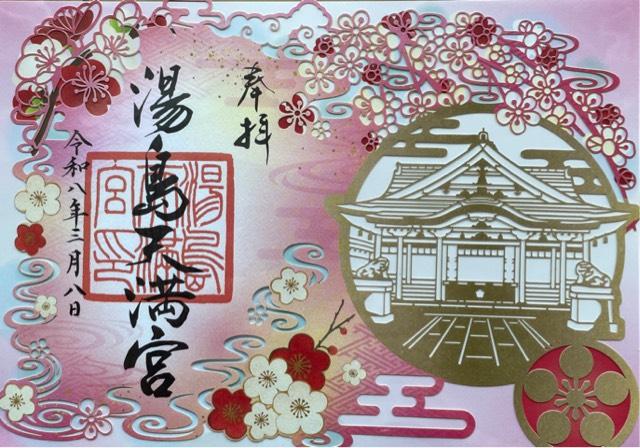 奉拝
湯島天満宮
湯島天満宮印
令和八年三月八日